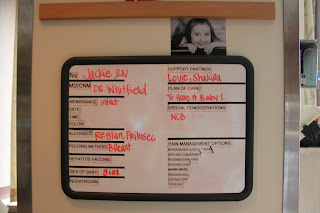 RN: Jackie, RN
MD/CNM: DR Whitfield
MEMBRANES: intact
DATE:
TIME:
COLOR:
ALLERGIES: Reglan, Prilosec
FEEDING METHOD: Breast
HEPATITIS VACCINE:
SEX OF BABY: Girl
PEDIATRICIAN:
SUPPORT PARTNER:
Lovie, Shakira
PLAN OF CARE:
To Have A Baby!
SPECIAL CONSIDERATIONS:
NCB
PAIN MANAGEMENT OPTIONS: